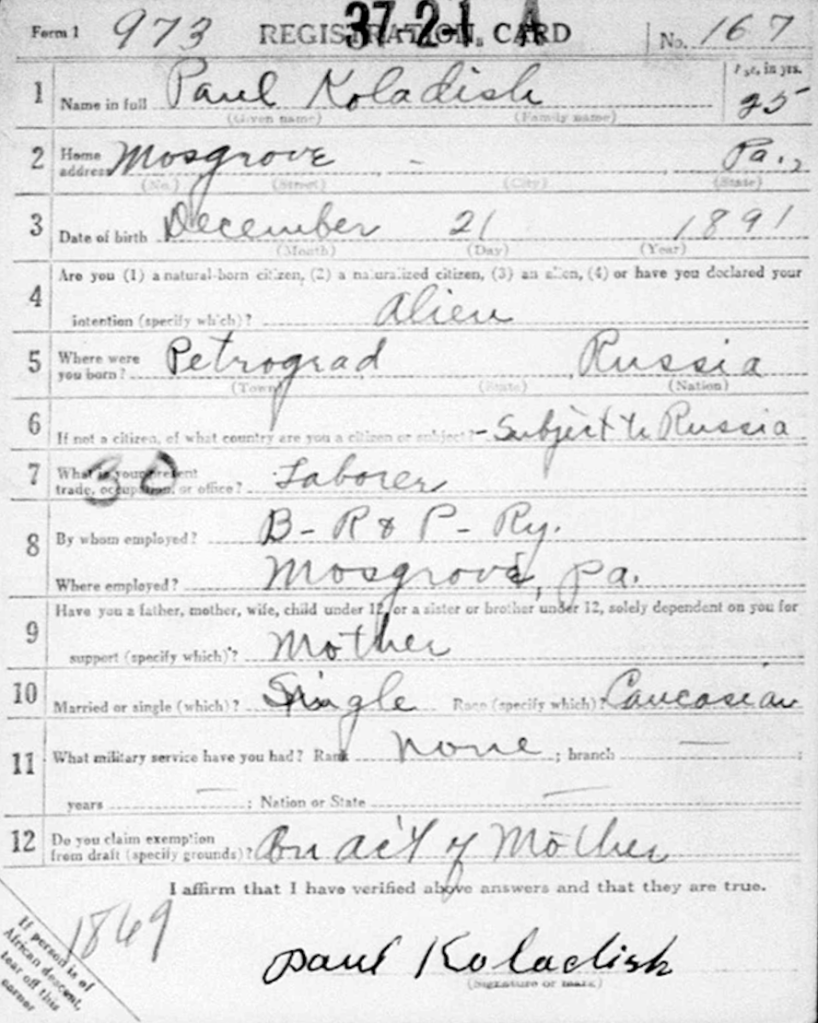 Form 1 973 REGISTRATION CARD 37-2-1 A No. 167
1 Name in full Paul Koladish Age, in yrs. 25
(Given name) (Family name)
2 Home address Mosgrove - Pa.,
(No.) (Street) (City) (State)
3 Date of birth December 21 1891
(Month) (Day) (Year)
4 Are you (1) a natural-born citizen, (2) a naturalized citizen, (3) an alien, (4) or have you declared your
intention (specify which)? alien
5 Where were you born? Petrograd Russia
(Town) (State) (Nation)
6 If not a citizen, of what country are you a citizen or subject? - Subject to Russia
7 What is your present trade, occupation, or office? 30 Laborer
8 By whom employed? B - R & P - Ry.
Where employed? Mosgrove, Pa.
9 Have you a father, mother, wife, child under 12, or a sister or brother under 12, solely dependent on you for
support (specify which)? Mother
10 Married or single (which)? Single Race (specify which)? Caucasian
11 What military service have you had? Rank none ; branch —
years — ; Nation or State —
12 Do you claim exemption from draft (specify grounds)? On act of Mother
I affirm that I have verified above answers and that they are true.
1869
Paul Koladish
(Signature or mark)
If person is of
African descent,
tear off this
corner